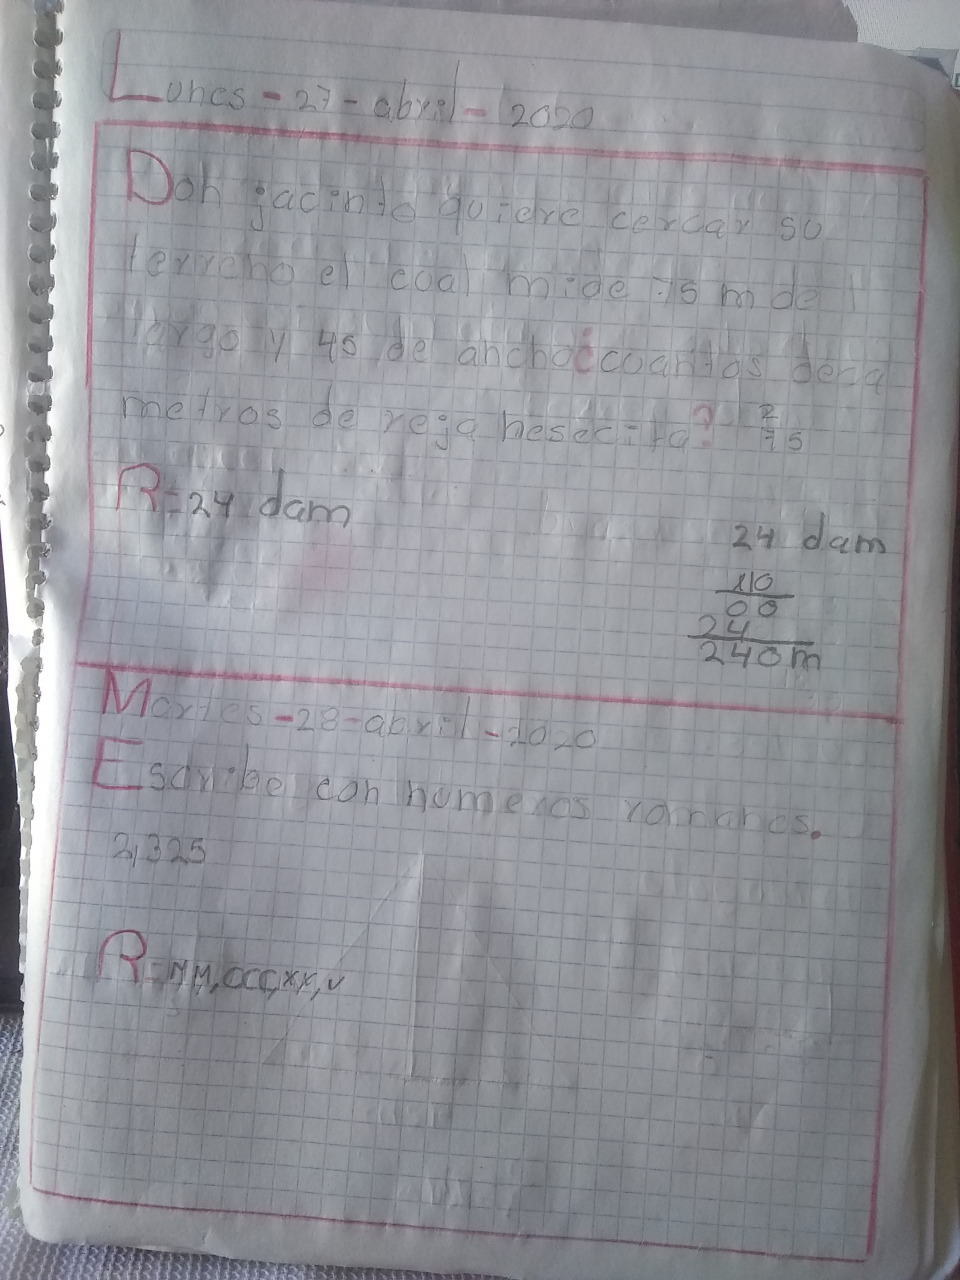 Lunes - 27 - abril - 2020
Don jacinto quiere cercar su
terreno el cual mide 75 m de
largo y 45 de ancho ¿cuantos deca
metros de reja nesecita? 2
75
R=24 dam
24 dam
x10
00
24
240m
Martes - 28 - abril - 2020
Escribe con numeros romanos.
2,325
R=MM,CCC,XX,V